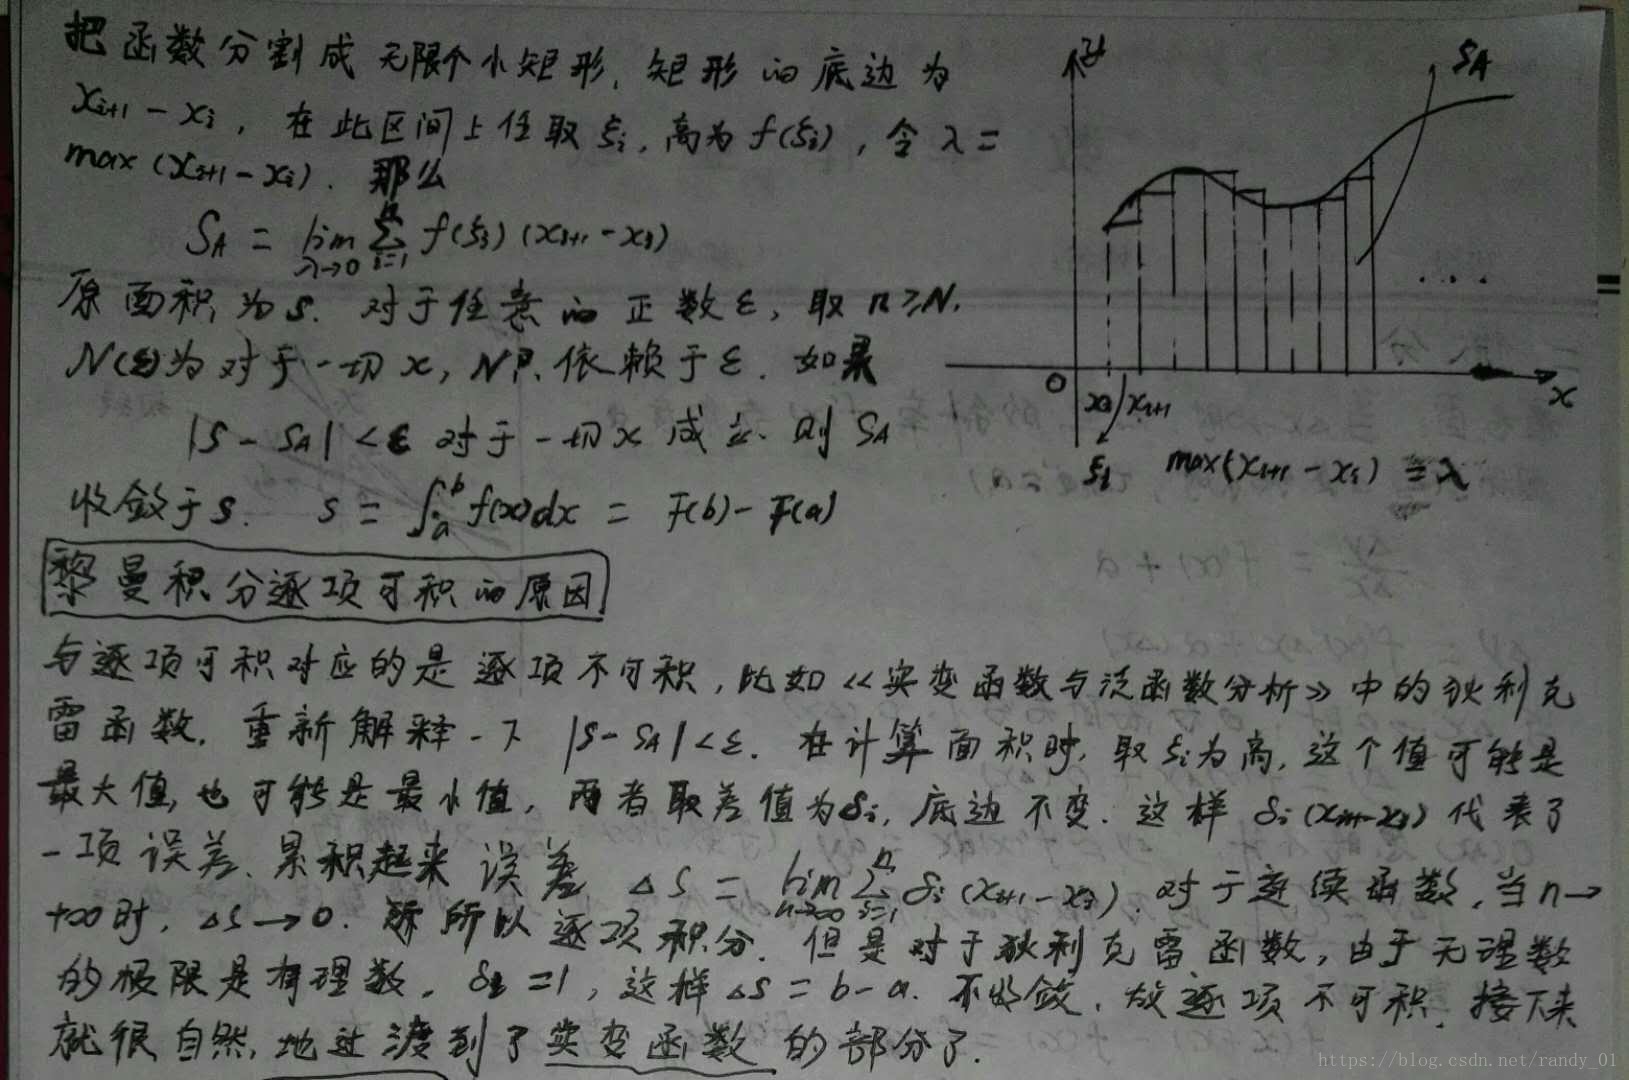 把函数分割成无限个小矩形,矩形的底边为
xᵢ₊₁ - xᵢ, 在此区间上任取ξᵢ,高为f(ξᵢ),令λ=
max(xᵢ₊₁-xᵢ). 那么
S_A = lim_{λ→0} Σ_{i=1}^{n} f(ξᵢ)(xᵢ₊₁-xᵢ)
原面积为S. 对于任意的正数ε,取n≥N.
N(ε)为对于一切x,N只依赖于ε. 如果
|S-S_A|<ε 对于一切x成立.则S_A
收敛于S. S = ∫_a^b f(x)dx = F(b)-F(a)
y
S_A
...
O
xᵢ
xᵢ₊₁
x
ξᵢ
max(xᵢ₊₁-xᵢ)=λ
黎曼积分逐项可积的原因
与逐项可积对应的是逐项不可积,比如《实变函数与泛函数分析》中的狄利克
雷函数. 重新解释一下 |S-S_A|<ε. 在计算面积时,取ξᵢ为高,这个值可能是
最大值,也可能是最小值,两者取差值为δᵢ,底边不变. 这样δᵢ(xᵢ₊₁-xᵢ)代表了
一项误差.累积起来误差 ΔS = lim_{n→∞} Σ_{i=1}^{n} δᵢ(xᵢ₊₁-xᵢ). 对于连续函数,当n→
+∞时, ΔS→0. 所以逐项积分. 但是对于狄利克雷函数,由于无理数
的极限是有理数. δᵢ=1, 这样ΔS=b-a. 不收敛,故逐项不可积. 接下来
就很自然,地过渡到了实变函数的部分了.
https://blog.csdn.net/randy_01